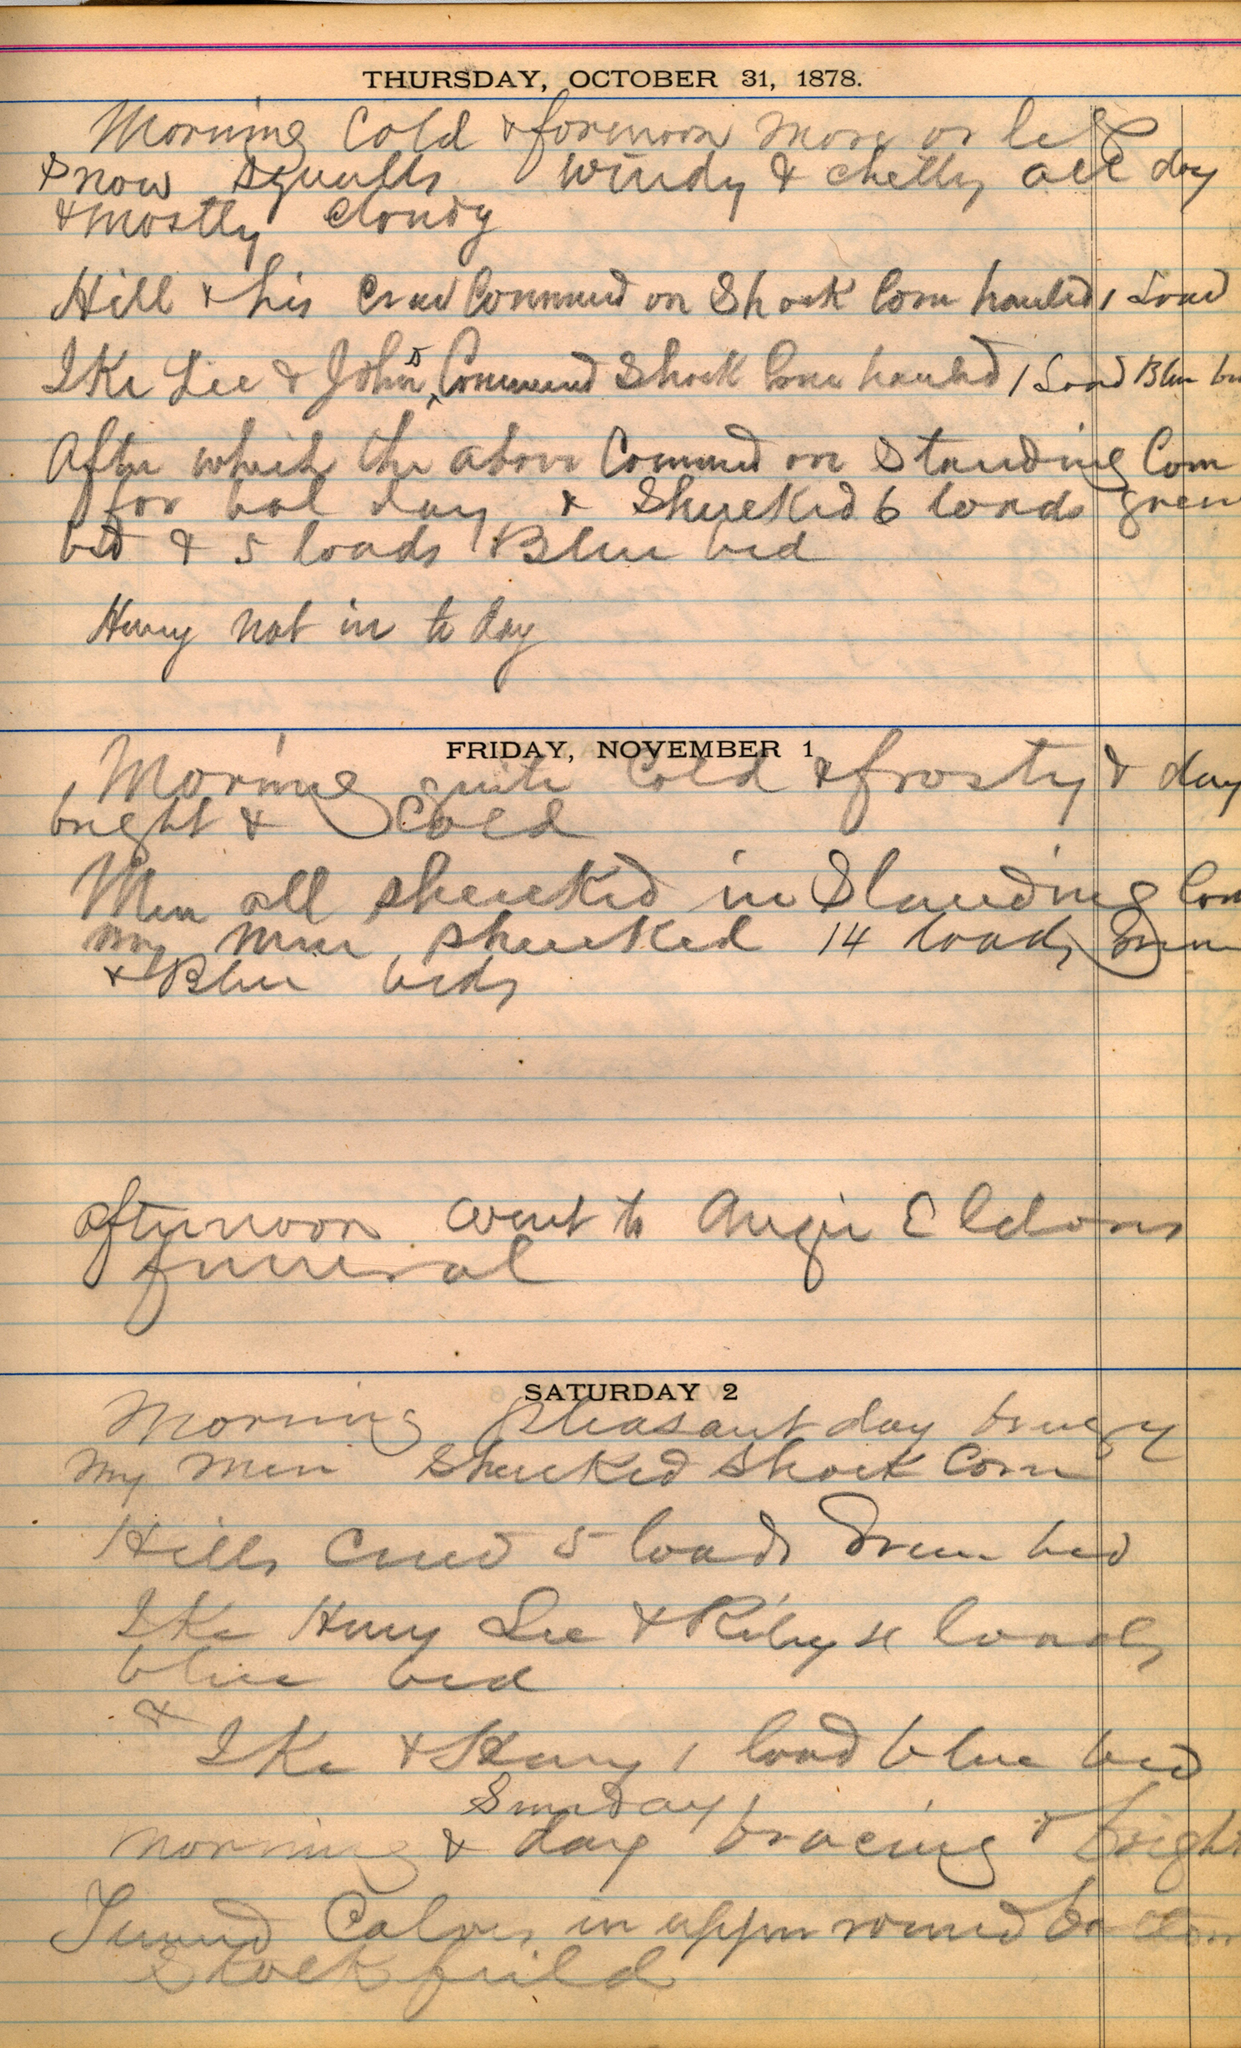 THURSDAY, OCTOBER 31, 1878.
Morning Cold & forenoon more or less
snow squalls windy & chilly all day
& mostly cloudy
Hill & his crew Commed on Shock Corn hauled 1 Load
Ike Lee & John D Commend Shock Corn hauled 1 Load Blue
After which the above Commed on Standing Corn
for bal day & Shucked 6 loads green
bed & 5 loads Blue bed
Henry not in to day
FRIDAY, NOVEMBER 1
Morning quite Cold & frosty & day
bright & Cold
Men all shucked in Standing Corn
my men shucked 14 loads Green
& Blue beds
afternoon went to Angie Eldons
funeral
SATURDAY 2
Morning pleasant day
My men Shucked Shock Corn
Hills Crew 5 loads Green bed
Ike Henry Lee & Riley 4 loads
blue bed
&
Ike & Henry 1 load blue bed
Sunday
Morning & day bracing & bright
Turned Calves in upper round bottom
Stock field